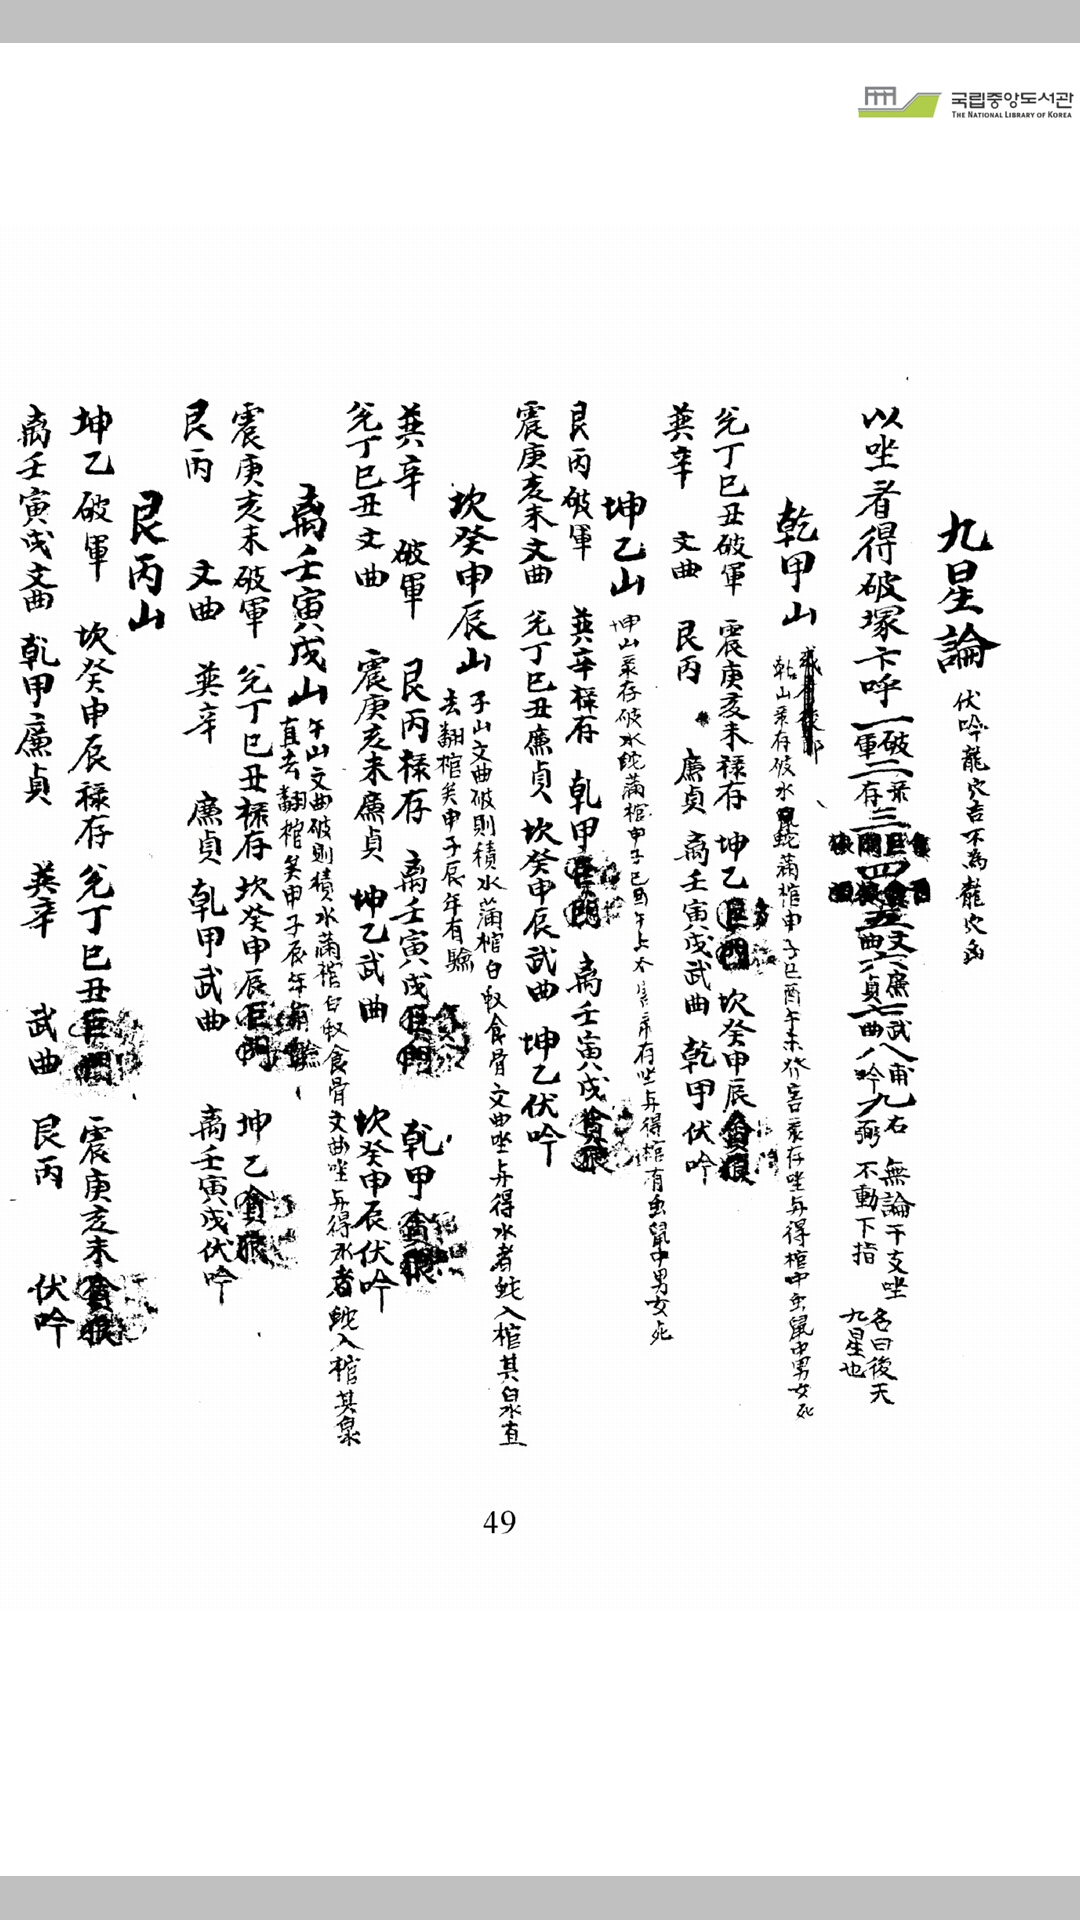 국립중앙도서관
THE NATIONAL LIBRARY OF KOREA
九星論 伏吟龍穴吉不為龍穴凶
以坐者得破塚卞呼 一破軍二祿存三巨門四貪狼五文曲六廉貞七武曲八甫吟九右弼 無論干支坐不動下指 名曰後天九星也
乾甲山 乾山祿存破水 蛇滿棺申子巳酉午未 害祿存坐与得棺中虫鼠中男女死
兌丁巳丑破軍 震庚亥未祿存 坤乙巨門 坎癸申辰貪狼
巽辛 文曲 艮丙 廉貞 离壬寅戌武曲 乾甲伏吟
坤乙山 坤山祿存破水蛇滿棺申子巳酉午 存坐与得棺有虫鼠中男女死
艮丙破軍 巽辛祿存 乾甲巨門 离壬寅戌貪狼
震庚亥未文曲 兌丁巳丑廉貞 坎癸申辰武曲 坤乙伏吟
坎癸申辰山 子山文曲破則積水滿棺白蚁食骨文曲坐与得水者蛇入棺其泉直去翻棺矣申子辰年有驗
巽辛 破軍 艮丙祿存 离壬寅戌巨門 乾甲貪狼
兌丁巳丑文曲 震庚亥未廉貞 坤乙武曲 坎癸申辰伏吟
离壬寅戌山 午山文曲破則積水滿棺白蚁食骨文曲坐与得水者蛇入棺其泉直去翻棺矣申子辰年有驗
震庚亥未破軍 兌丁巳丑祿存 坎癸申辰巨門 坤乙貪狼
艮丙 文曲 巽辛 廉貞 乾甲武曲 离壬寅戌伏吟
艮丙山
坤乙破軍 坎癸申辰祿存 兌丁巳丑巨門 震庚亥未貪狼
离壬寅戌文曲 乾甲廉貞 巽辛 武曲 艮丙 伏吟
49